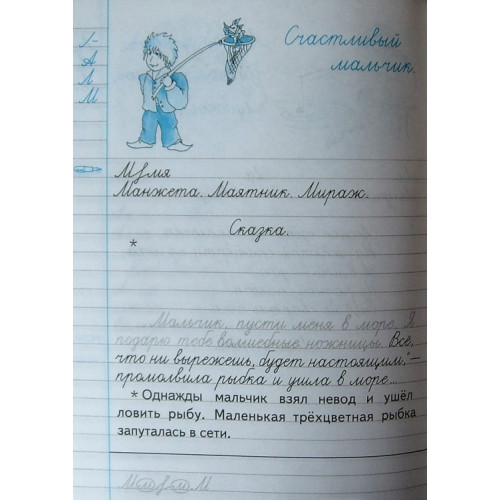 Счастливый
мальчик.
А
Л
М
Манжета. Маятник. Мираж.
Сказка.
*
Мальчик, пусти меня в море. Я
подарю тебе волшебные ножницы. Всё,
что ни вырежешь, будет настоящим," –
промолвила рыбка и ушла в море...
* Однажды мальчик взял невод и ушёл
ловить рыбу. Маленькая трёхцветная рыбка
запуталась в сети.